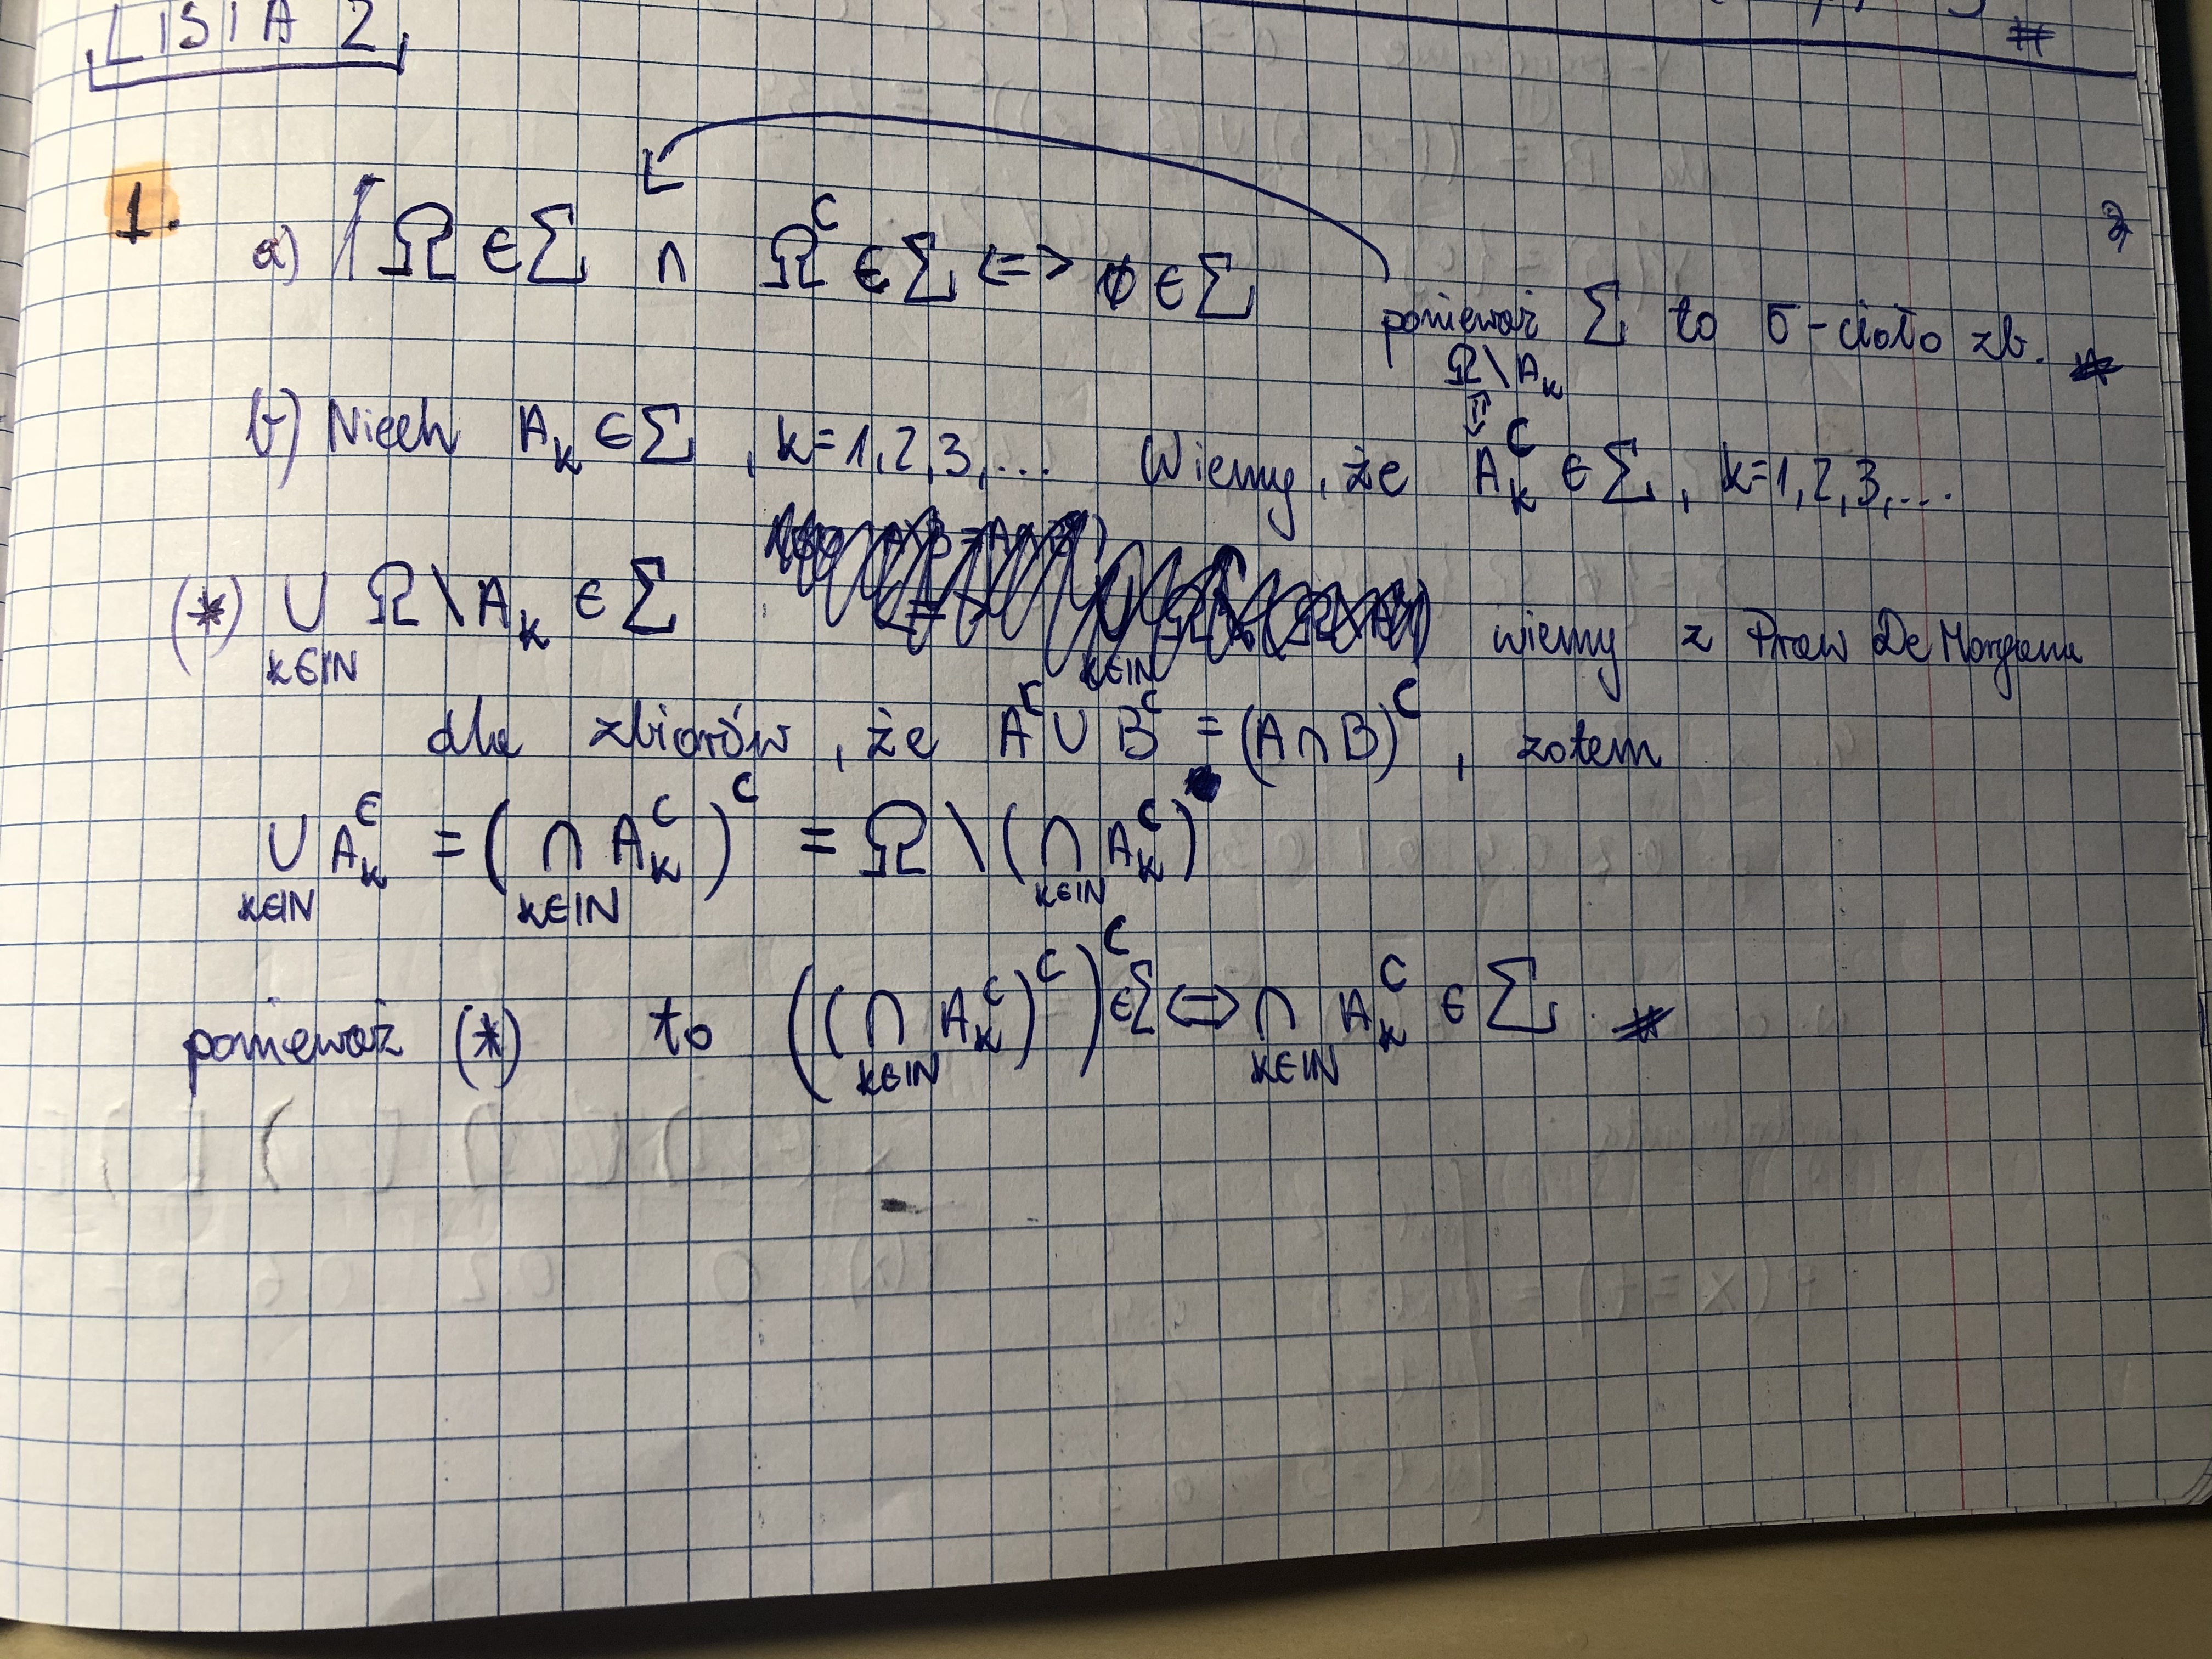 LISTA 2
#
1.
a) Ω ∈ Σ ∩ Ω^C ∈ Σ <=> ∅ ∈ Σ
ponieważ Σ to σ-ciało zb. #
Ω \ A_k
⇕
b) Niech A_k ∈ Σ , k=1,2,3,... Wiemy, że A_k^C ∈ Σ, k=1,2,3,...
(*) ∪_{k∈ℕ} Ω \ A_k ∈ Σ wiemy z Praw De Morgana
dla zbiorów, że A^C ∪ B^C = (A ∩ B)^C , zatem
∪_{k∈ℕ} A_k^C = ( ∩_{k∈ℕ} A_k^C )^C = Ω \ ( ∩_{k∈ℕ} A_k^C )
ponieważ (*) to ( ( ∩_{k∈ℕ} A_k^C )^C )^C ∈ Σ <=> ∩_{k∈ℕ} A_k^C ∈ Σ. #